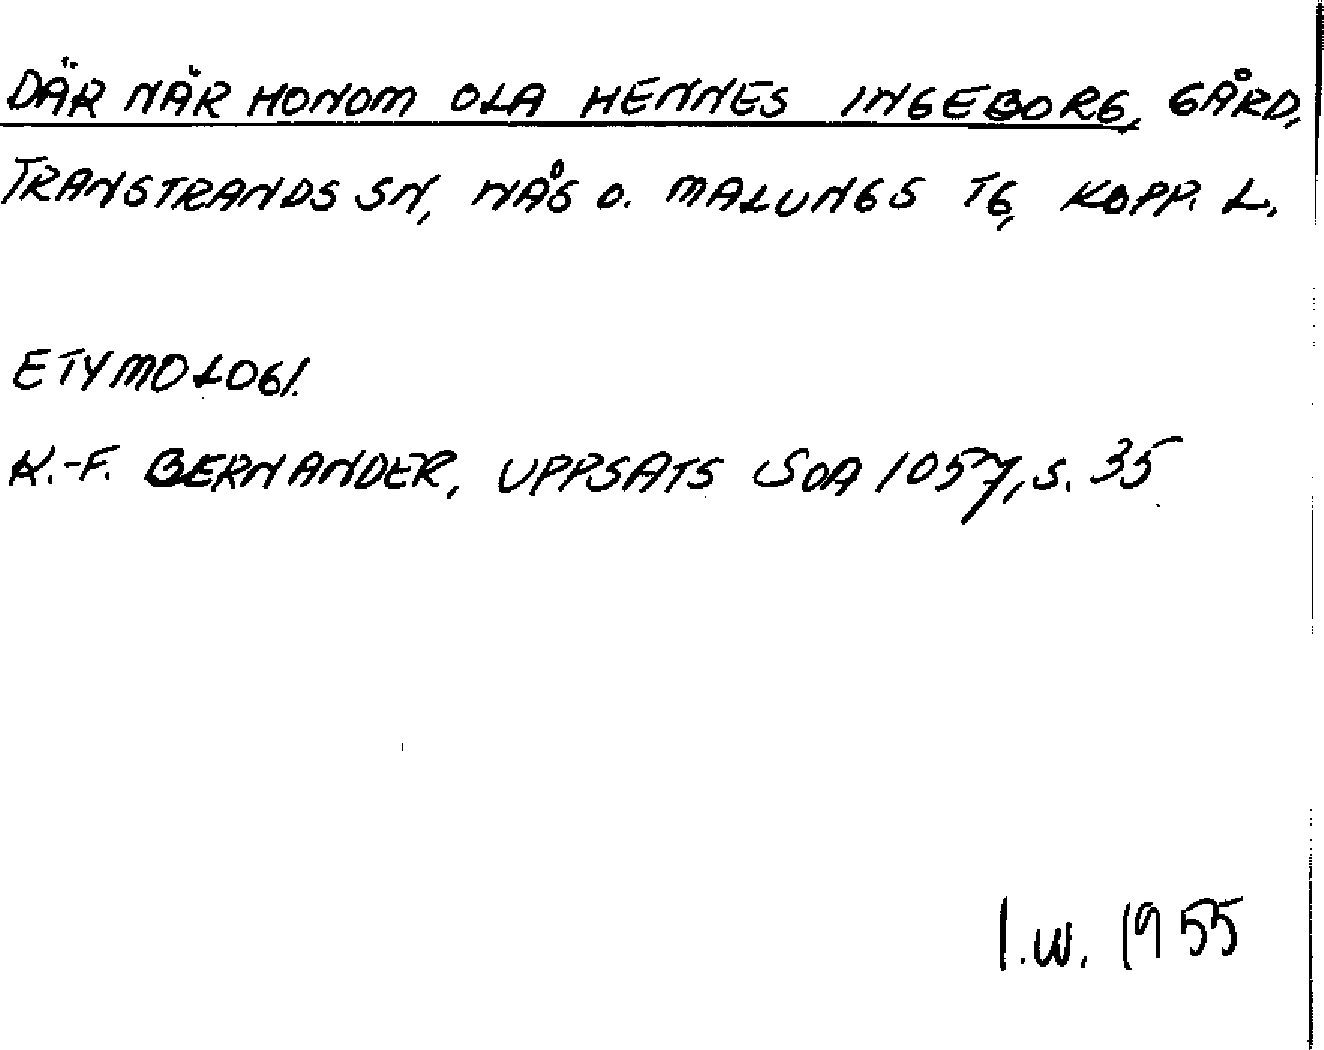 DÄR NÄR HONOM OLA HENNES INGEBORG, GÅRD,
TRANSTRANDS SN, NÅS O. MALUNGS TG, KOPP. L.
ETYMOLOGI.
K.-F. BERNANDER, UPPSATS SOA 1057, S. 35
I.W. 1955